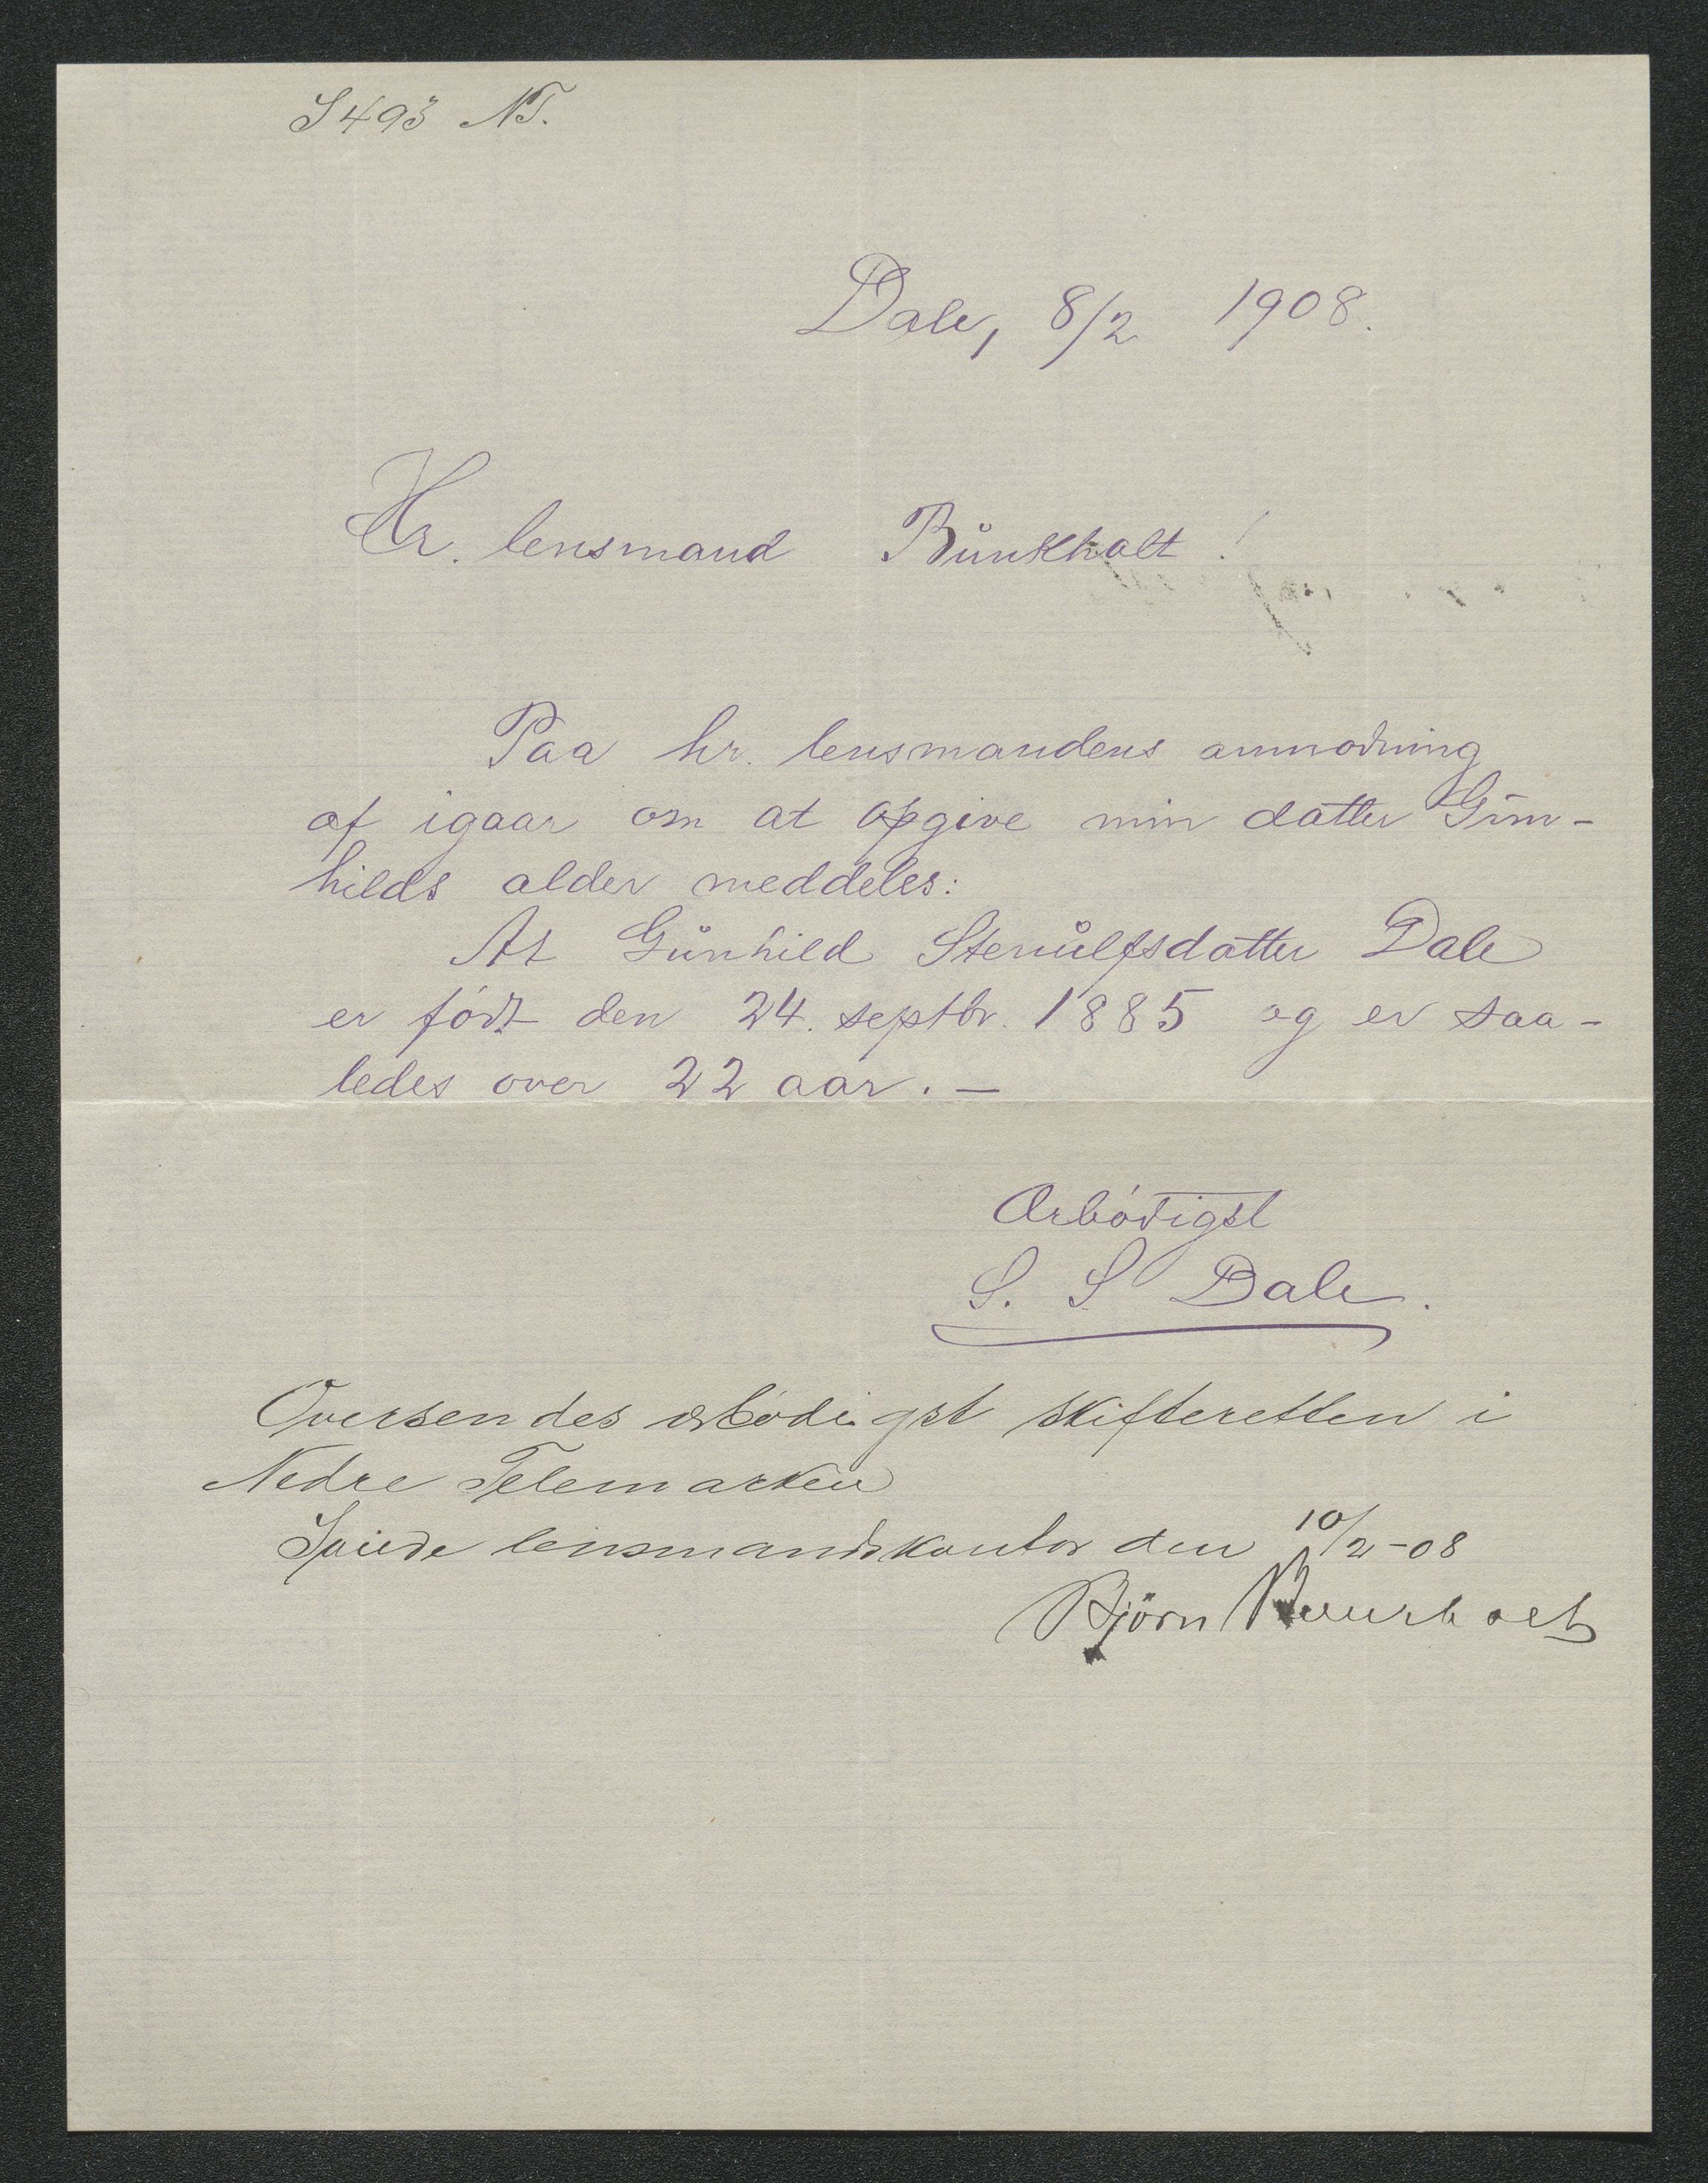 S 493 NT.
Dale, 8/2 1908.
Hr. lensmand Bunkholt!
Paa hr. lensmandens anmodning
af igaar om at opgive min datter Gun-
hilds alder meddeles:
At Gunhild Stenulfsdatter Dale
er födt den 24. septbr. 1885 og er saa-
ledes over 22 aar. —
Ærbödigst
S. S Dale.
Oversendes ærbödigst skifteretten i
Nedre Telemarken
lensmandskontor den 10/2-08
Björn Bunkholt